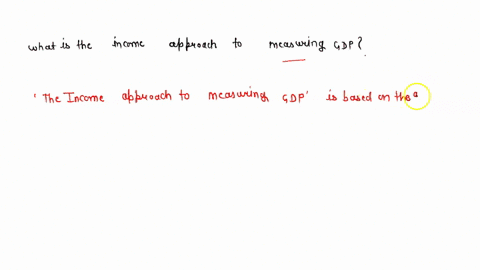 what is the income approach to measuring GDP?
'The Income approach to measuring GDP' is based on the a